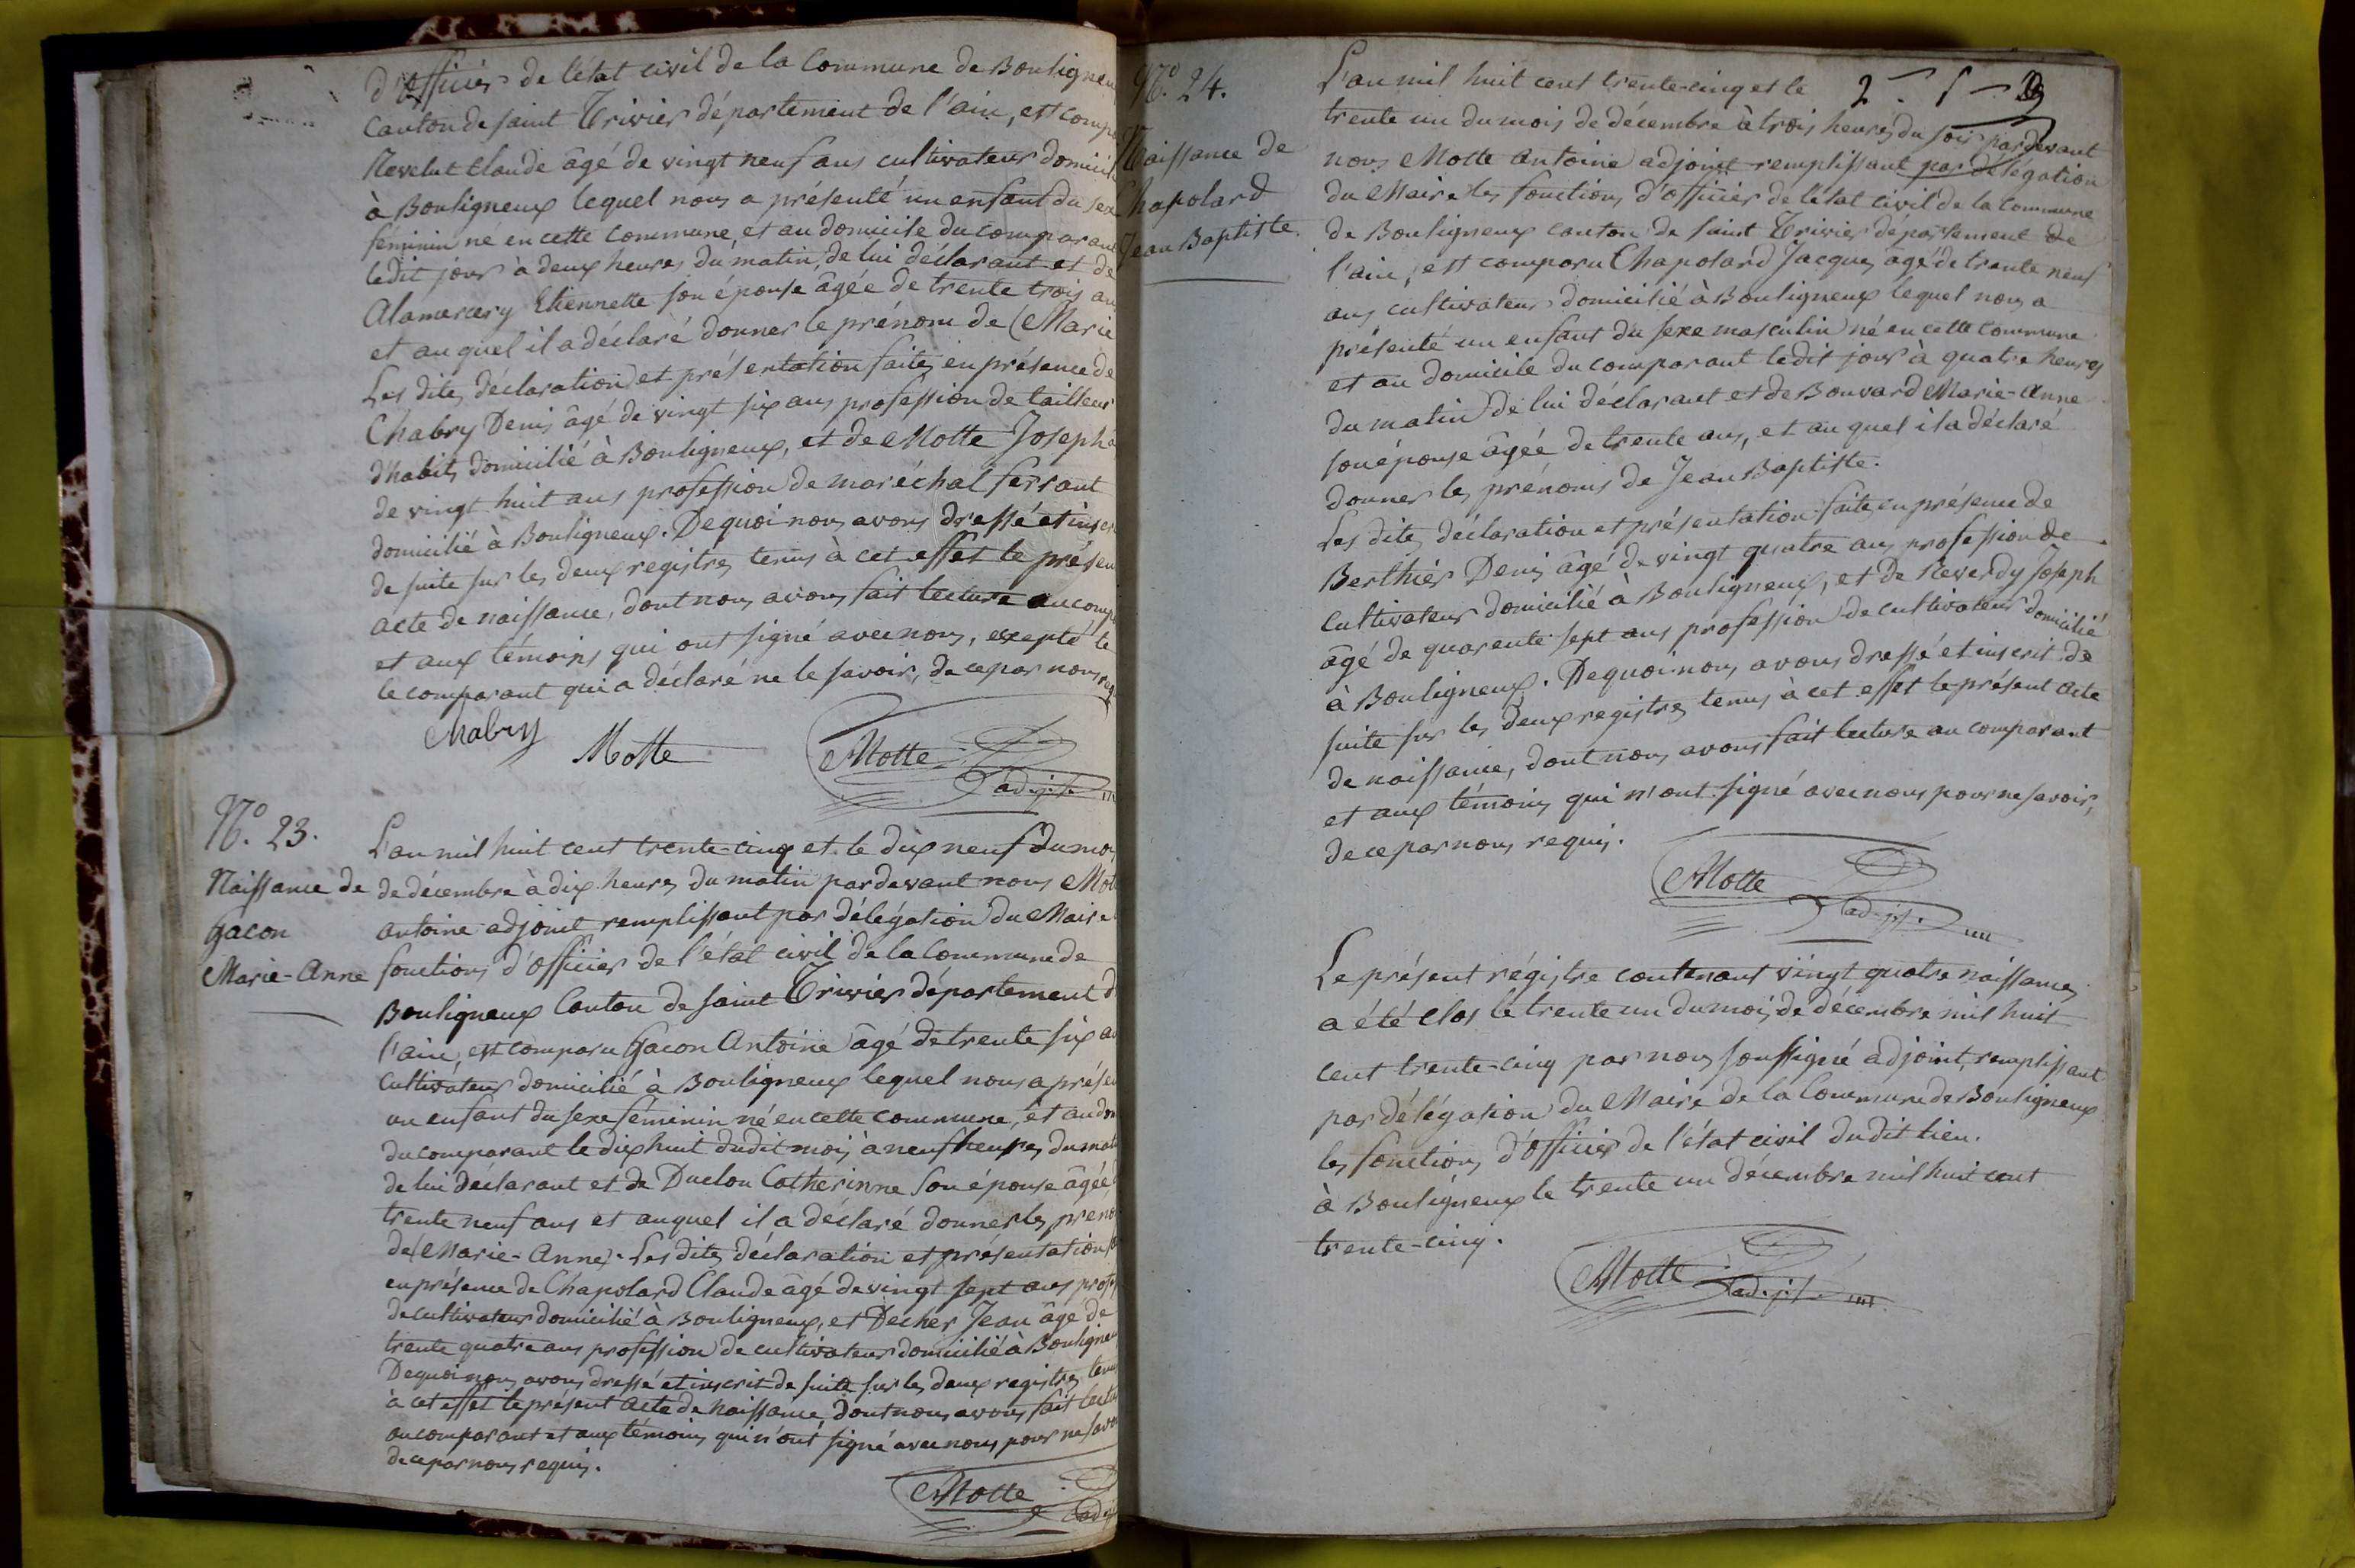 d'officier de l'état civil de la Commune de Bouligneux
Canton de saint Trivier département de l'ain, est compa
Revelut Claude âgé de vingt neuf ans cultivateur domicil
à Bouligneux lequel nous a présenté un enfant du sexe
féminin né en cette commune, et au domicile du comparant
ledit jour à deux heures du matin, de lui déclarant et de
Alamercery Etiennette son épouse âgée de trente trois an
et au quel il a déclaré donner le prénom de (Marie
Les dites déclaration et présentation faites en présence de
Chabry Denis âgé de vingt six ans profession de tailleur
d'habits domicilié à Bouligneux, et de Motte Joseph â
de vingt huit ans profession de maréchal ferrant
domicilié à Bouligneux. De quoi nous avons dressé et inscr
de suite sur les deux registres tenus à cet effet le présen
acte de naissance, dont nous avons fait lecture au comp
et aux témoins qui ont signé avec nous, excepté le
le comparant qui a déclaré ne le savoir, de ce par nous requ
Chabry
Motte
Motte
adj.t
N.o 23.
Naissance de
Gacon
Marie-Anne
L'an mil huit cent trente-cinq et le dix neuf du moi
de décembre à dix heures du matin pardevant nous Mot
antoine adjoint remplissant par délégation du Maire
fonctions d'officier de l'état civil de la Commune de
Bouligneux Canton de saint Trivier département d
l'ain, est comparu Gacon Antoine âgé de trente six an
Cultivateur domicilié à Bouligneux lequel nous a présen
un enfant du sexe féminin né en cette commune, et au dom
du comparant le dix huit dudit mois à neuf heures du mat
de lui déclarant et de Duclou Catherinne son épouse âgée d
trente neuf ans et auquel il a déclaré donner les préno
de (Marie-Anne). Les dites déclaration et présentation
en présence de Chapolard Claude âgé de vingt sept ans profe
de cultivateur domicilié à Bouligneux, et Decher Jean âgé de
trente quatre ans profession de cultivateur domicilié à Bouligneu
De quoi nous avons dressé et inscrit de suite sur les deux registres tenus
à cet effet le présent acte de naissance, dont nous avons fait lectu
au comparant et aux témoins qui n'ont signé avec nous pour ne savoi
de ce par nous requis.
Motte
adj
N.o 24.
Naissance de
Chapolard
Jean Baptiste.
L'an mil huit cent trente-cinq et le
trente un du mois de décembre à trois heures du soir pardevant
nous Motte Antoine adjoint remplissant par délégation
du Maire les fonctions d'officier de l'état civil de la commune
de Bouligneux canton de saint Trivier département de
l'ain, est comparu Chapolard Jacques âgé de trente neuf
ans cultivateur domicilié à Bouligneux lequel nous a
présenté un enfant du sexe masculin né en cette commune
et au domicile du comparant ledit jour à quatre heures
du matin de lui déclarant et de Bouvard Marie-Anne
son épouse âgée de trente ans, et au quel il a déclaré
donner les prénoms de Jean Baptiste.
Les dites déclaration et présentation faites en présence de
Berthier Denis âgé de vingt quatre ans profession de
Cultivateur domicilié à Bouligneux, et de Reverdy Joseph
âgé de quarente sept ans profession de cultivateur domicilié
à Bouligneux. De quoi nous avons dressé et inscrit de
suite sur les deux registres tenus à cet effet le présent acte
de naissance, dont nous avons fait lecture au comparant
et aux témoins qui n'ont signé avec nous pour ne savoir,
de ce par nous requis.
Motte
adj.t
Le présent régistre contenant vingt quatre naissances
a été clos le trente un du mois de décembre mil huit
cent trente-cinq par nous soussigné adjoint, remplissant
par délégation du Maire de la Commune de Bouligneux
les fonctions d'officier de l'état civil dudit lieu.
à Bouligneux le trente un décembre mil huit cent
trente-cinq.
Motte
adj.t